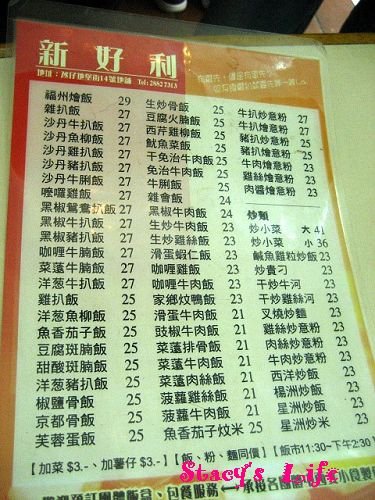 新好利
地址：氹仔地堡街14號地舖 Tel: 2882 7313
福州燴飯 29
雜扒飯 27
沙丹牛扒飯 27
沙丹魚柳飯 27
沙丹雞扒飯 27
沙丹豬扒飯 27
沙丹牛脷飯 27
嚤囉雞飯 27
黑椒鴛鴦扒飯 27
黑椒牛扒飯 27
黑椒豬扒飯 27
咖喱牛腩飯 27
菜薳牛腩飯 27
洋葱牛扒飯 27
雞扒飯 25
洋葱魚柳飯 25
魚香茄子飯 25
豆腐斑腩飯 25
甜酸斑腩飯 25
洋葱豬扒飯 25
椒鹽骨飯 25
京都骨飯 25
芙蓉蛋飯 25
生炒骨飯 25
豆腐火腩飯 25
西芹雞柳飯 25
魷魚菜飯 25
干免治牛肉飯 25
免治牛肉飯 25
牛脷飯 25
雜會飯 24
黑椒牛肉飯 24
生炒牛肉飯 23
生炒雞絲飯 23
滑蛋蝦仁飯 23
咖喱雞飯 23
咖喱牛肉飯 23
家鄉炆鴨飯 23
滑蛋牛肉飯 21
豉椒牛肉飯 21
菜薳排骨飯 21
菜薳牛肉飯 21
菜薳肉絲飯 21
菠蘿雞絲飯 21
菠蘿牛肉飯 21
魚香茄子炆米 25
牛扒炒意粉 27
牛扒燴意粉 27
豬扒炒意粉 27
豬扒燴意粉 25
牛肉燴意粉 23
雞絲燴意粉 23
肉醬燴意粉 23
炒類
炒小菜 大 41
炒小菜 小 36
鹹魚雞粒炒飯 23
炒貴刁 23
干炒牛河 23
干炒雞絲河 23
叉燒炒麵 23
雞絲炒意粉 23
肉絲炒意粉 23
牛肉炒意粉 23
西洋炒飯 23
楊洲炒飯 23
星洲炒飯 23
星洲炒米 23
【加菜 $3.-、加薯仔 $3.-】【飯、粉、麵同價】【飯市11:30~下午2:30
Stacy's Life